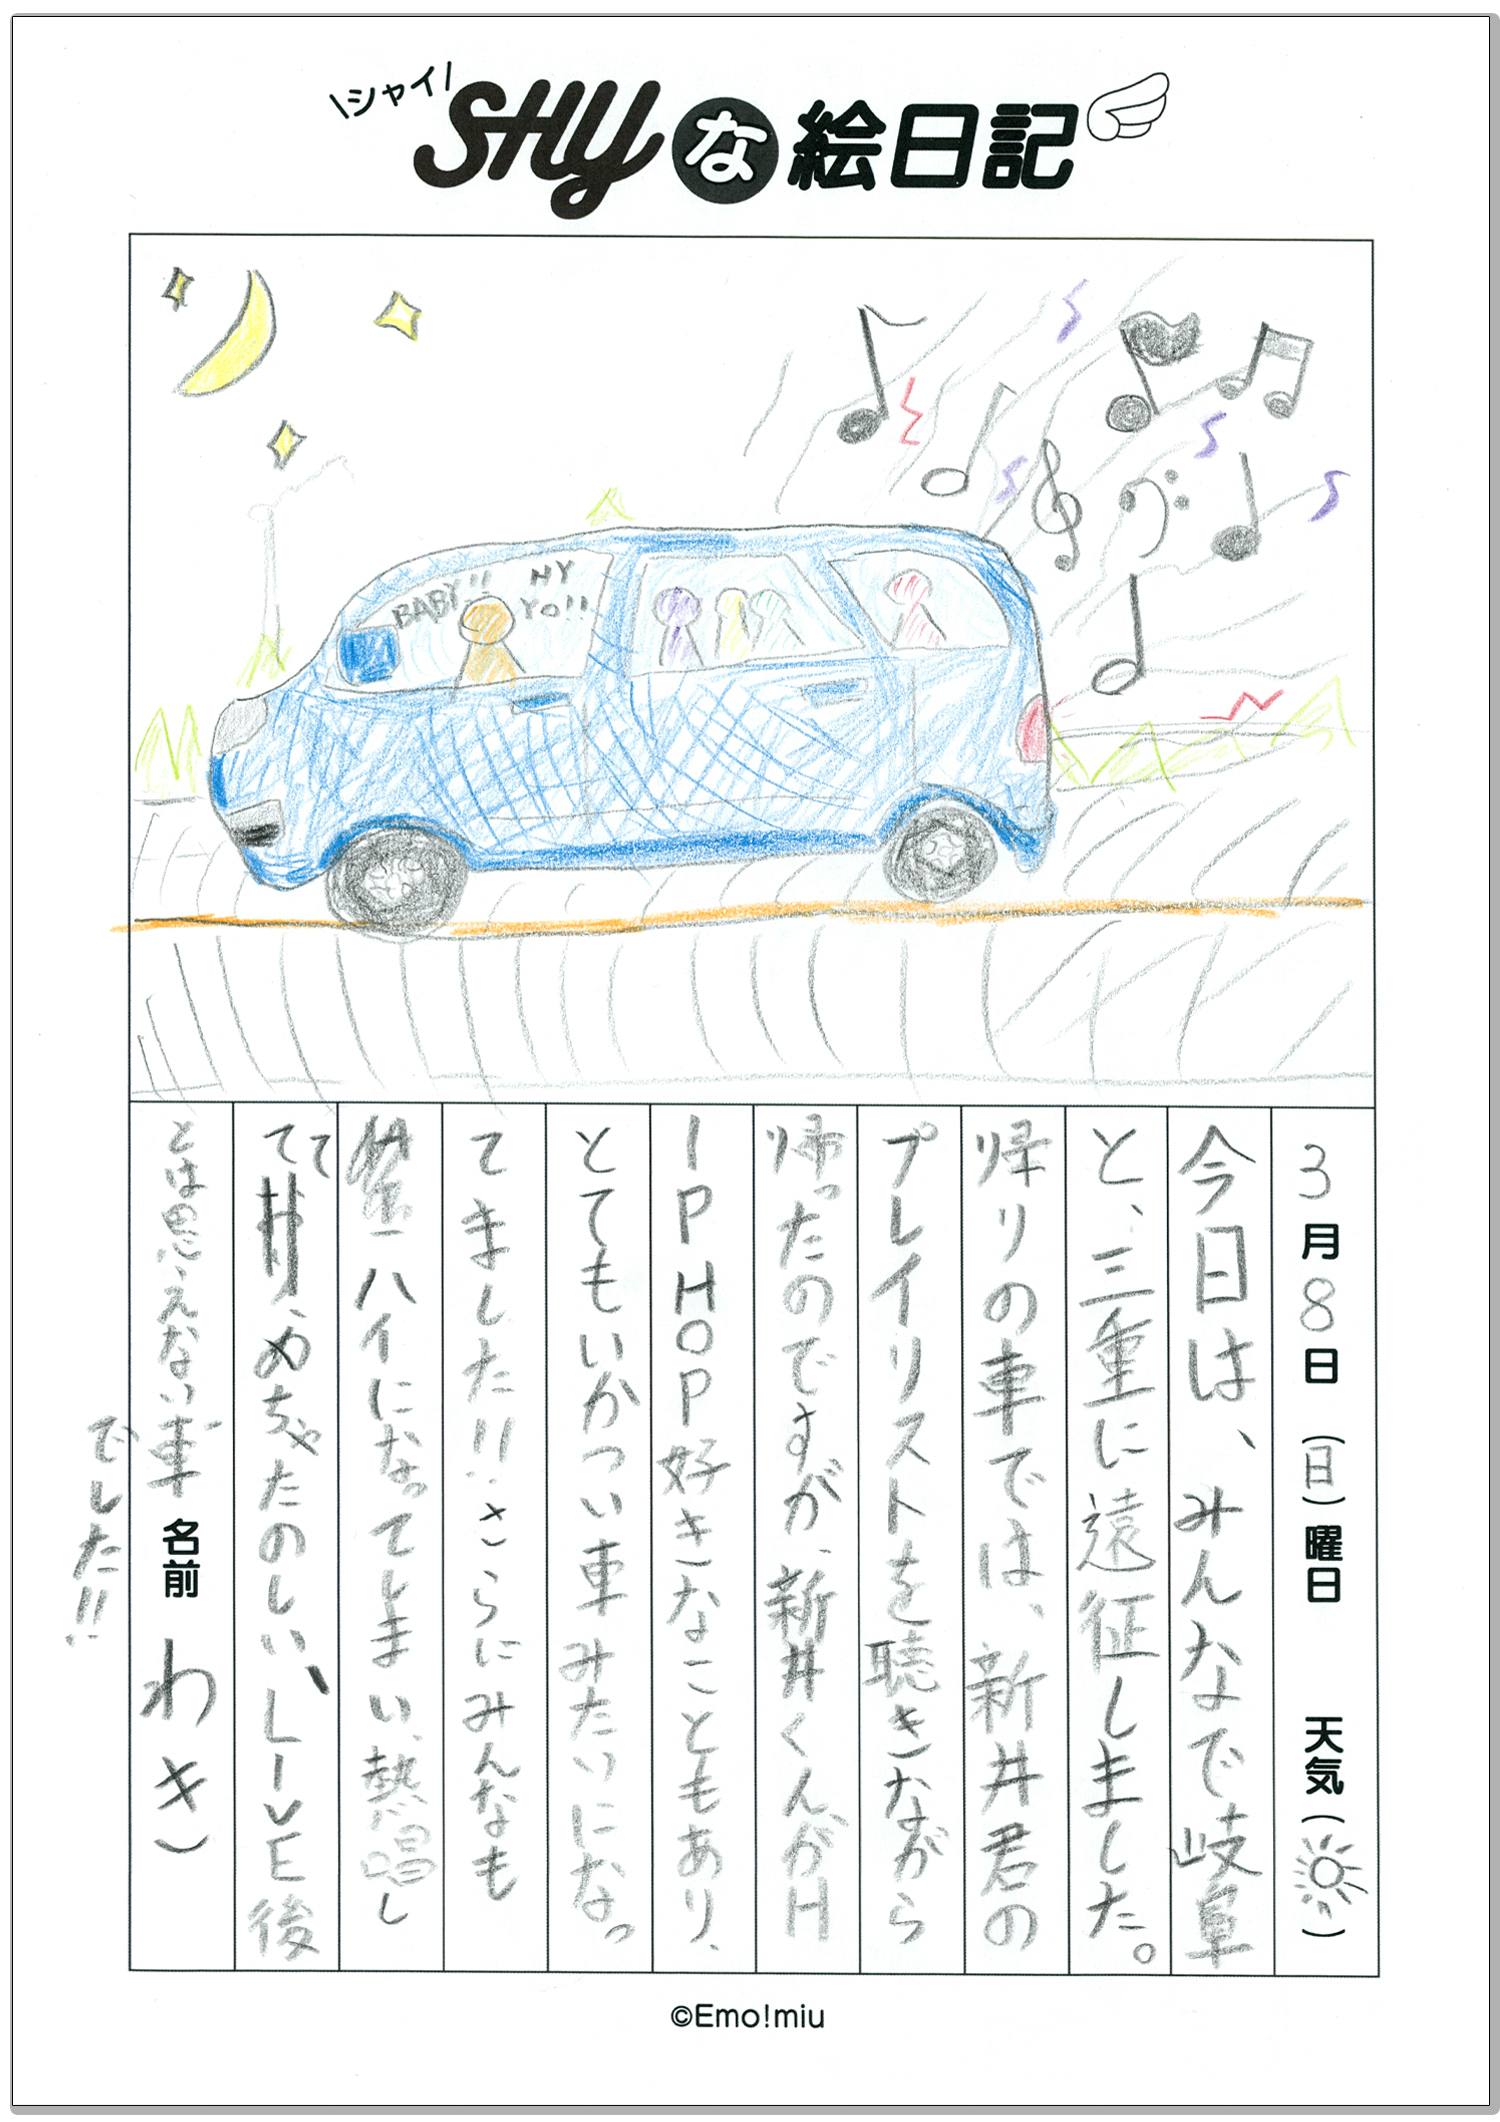 \シャイ/
SHYな絵日記
BABY!!
HY
YO!!
3月8日(日)曜日 天気( )
今日は、みんなで岐阜
と、三重に遠征しました。
帰りの車では、新井君の
プレイリストを聴きながら
帰ったのですが、新井くんがH
IPHOP好きなこともあり、
とてもいかつい車みたいになっ
てました!!さらにみんなも
ハイになってしまい、熱唱し
てて、めちゃたのしい、LIVE後
とは思えない車
でした!!
名前 わき
©Emo!miu